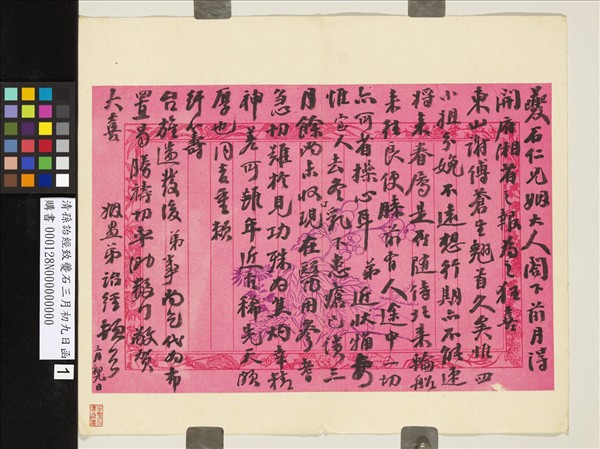 夔石仁兄姻大人閣下前月得
開府湘省之報為之狂喜
東山謝傅蒼生翹首久矣惟四
小姐分娩不遠想行期亦不能速
將來春寓是否隨侍北來輪船
來往良便膝前有人途中一切
亦可省操心耳 弟近狀猶
惟室人去冬乳下患瘡已淺三
月餘尚未收現在醫用參蓍
急切難於見功殊為焦灼幸精
神差可維年近古稀先天頗
厚也
台旌遄發後 弟事尚乞代為布
置易勝禱切手泐敬賀
大喜
姻愚弟詒經頓首
三月初九日
清孫詒經致夔石三月初九日函
購書 000128N000000000
1